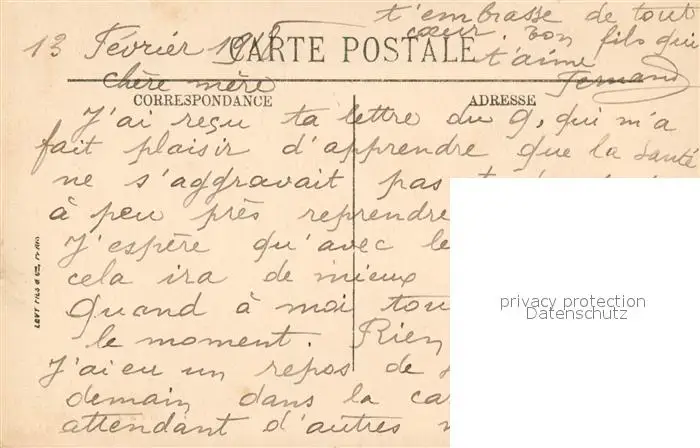 t'embrasse de tout
cœur. Ton fils qui
t'aime
Fernand
13 Février
CARTE POSTALE
chère mère
CORRESPONDANCE
ADRESSE
J'ai reçu ta lettre du 9, qui m'a
fait plaisir d'apprendre que la santé
ne s'aggravait pas
à peu près reprendre
J'espère qu'avec le
cela ira de mieux
Quand à moi tou
le moment. Rien
J'ai eu un repos de
demain dans la ca
attendant d'autres
LEVY FILS & Cie PARIS
privacy protection
Datenschutz